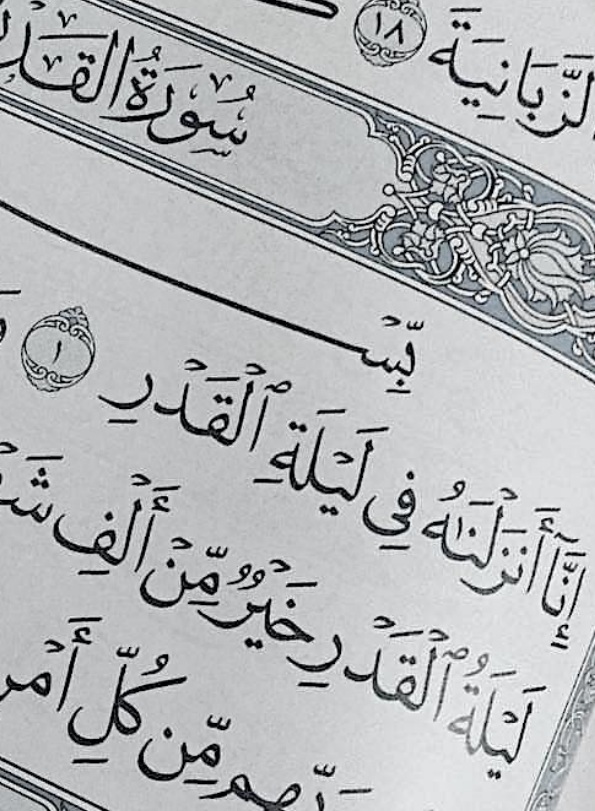 ٱلزَّبَانِيَةَ ١٨
سُورَةُ القَدْرِ
بِسْ
إِنَّآ أَنزَلْنَٰهُ فِى لَيْلَةِ ٱلْقَدْرِ ١
لَيْلَةُ ٱلْقَدْرِ خَيْرٌ مِّنْ أَلْفِ
مِّن كُلِّ أَمْرٍ